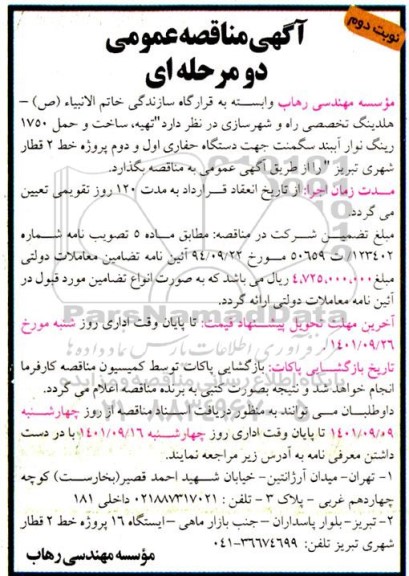 نوبت دوم
آگهی مناقصه عمومی
دو مرحله ای
مؤسسه مهندسی رهاب وابسته به قرارگاه سازندگی خاتم الانبیاء (ص) –
هلدینگ تخصصی راه و شهرسازی در نظر دارد"تهیه، ساخت و حمل ۱۷۵۰
رینگ نوار آببند سگمنت جهت دستگاه حفاری اول و دوم پروژه خط ۲ قطار
شهری تبریز "را از طریق آگهی عمومی به مناقصه بگذارد.
مدت زمان اجرا: از تاریخ انعقاد قرارداد به مدت ۱۲۰ روز تقویمی تعیین
می گردد.
مبلغ تضمین شرکت در مناقصه: مطابق ماده ۵ تصویب نامه شماره
۱۲۳۴۰۲/ت ۵۰۶۵۹ مورخ ۹۴/۰۹/۲۲ آئین نامه تضامین معاملات دولتی
مبلغ ۴,۷۲۵,۰۰۰,۰۰۰ ریال می باشد که به صورت انواع تضامین مورد قبول در
آئین نامه معاملات دولتی ارائه گردد.
آخرین مهلت تحویل پیشنهاد قیمت: تا پایان وقت اداری روز شنبه مورخ
۱۴۰۱/۰۹/۲۶
تاریخ بازگشایی پاکات: بازگشایی پاکات توسط کمیسیون مناقصه کارفرما
انجام خواهد شد و نتیجه بصورت کتبی به برنده مناقصه اعلام می گردد.
داوطلبان می توانند به منظور دریافت اسناد مناقصه از روز چهارشنبه
۱۴۰۱/۰۹/۰۹ تا پایان وقت اداری روز چهارشنبه ۱۴۰۱/۰۹/۱۶ با در دست
داشتن معرفی نامه به آدرس زیر مراجعه نمایند.
۱- تهران- میدان آرژانتین- خیابان شهید احمد قصیر(بخارست) کوچه
چهاردهم غربی - پلاک ۳ - تلفن: ۰۲۱۸۸۷۳۱۷۰۲۱ داخلی ۱۸۱
۲- تبریز- بلوار پاسداران – جنب بازار ماهی –ایستگاه ۱۶ پروژه خط ۲ قطار
شهری تبریز تلفن: ۳۶۶۷۴۶۹۹-۰۴۱
مؤسسه مهندسی رهاب
ParsNamadData